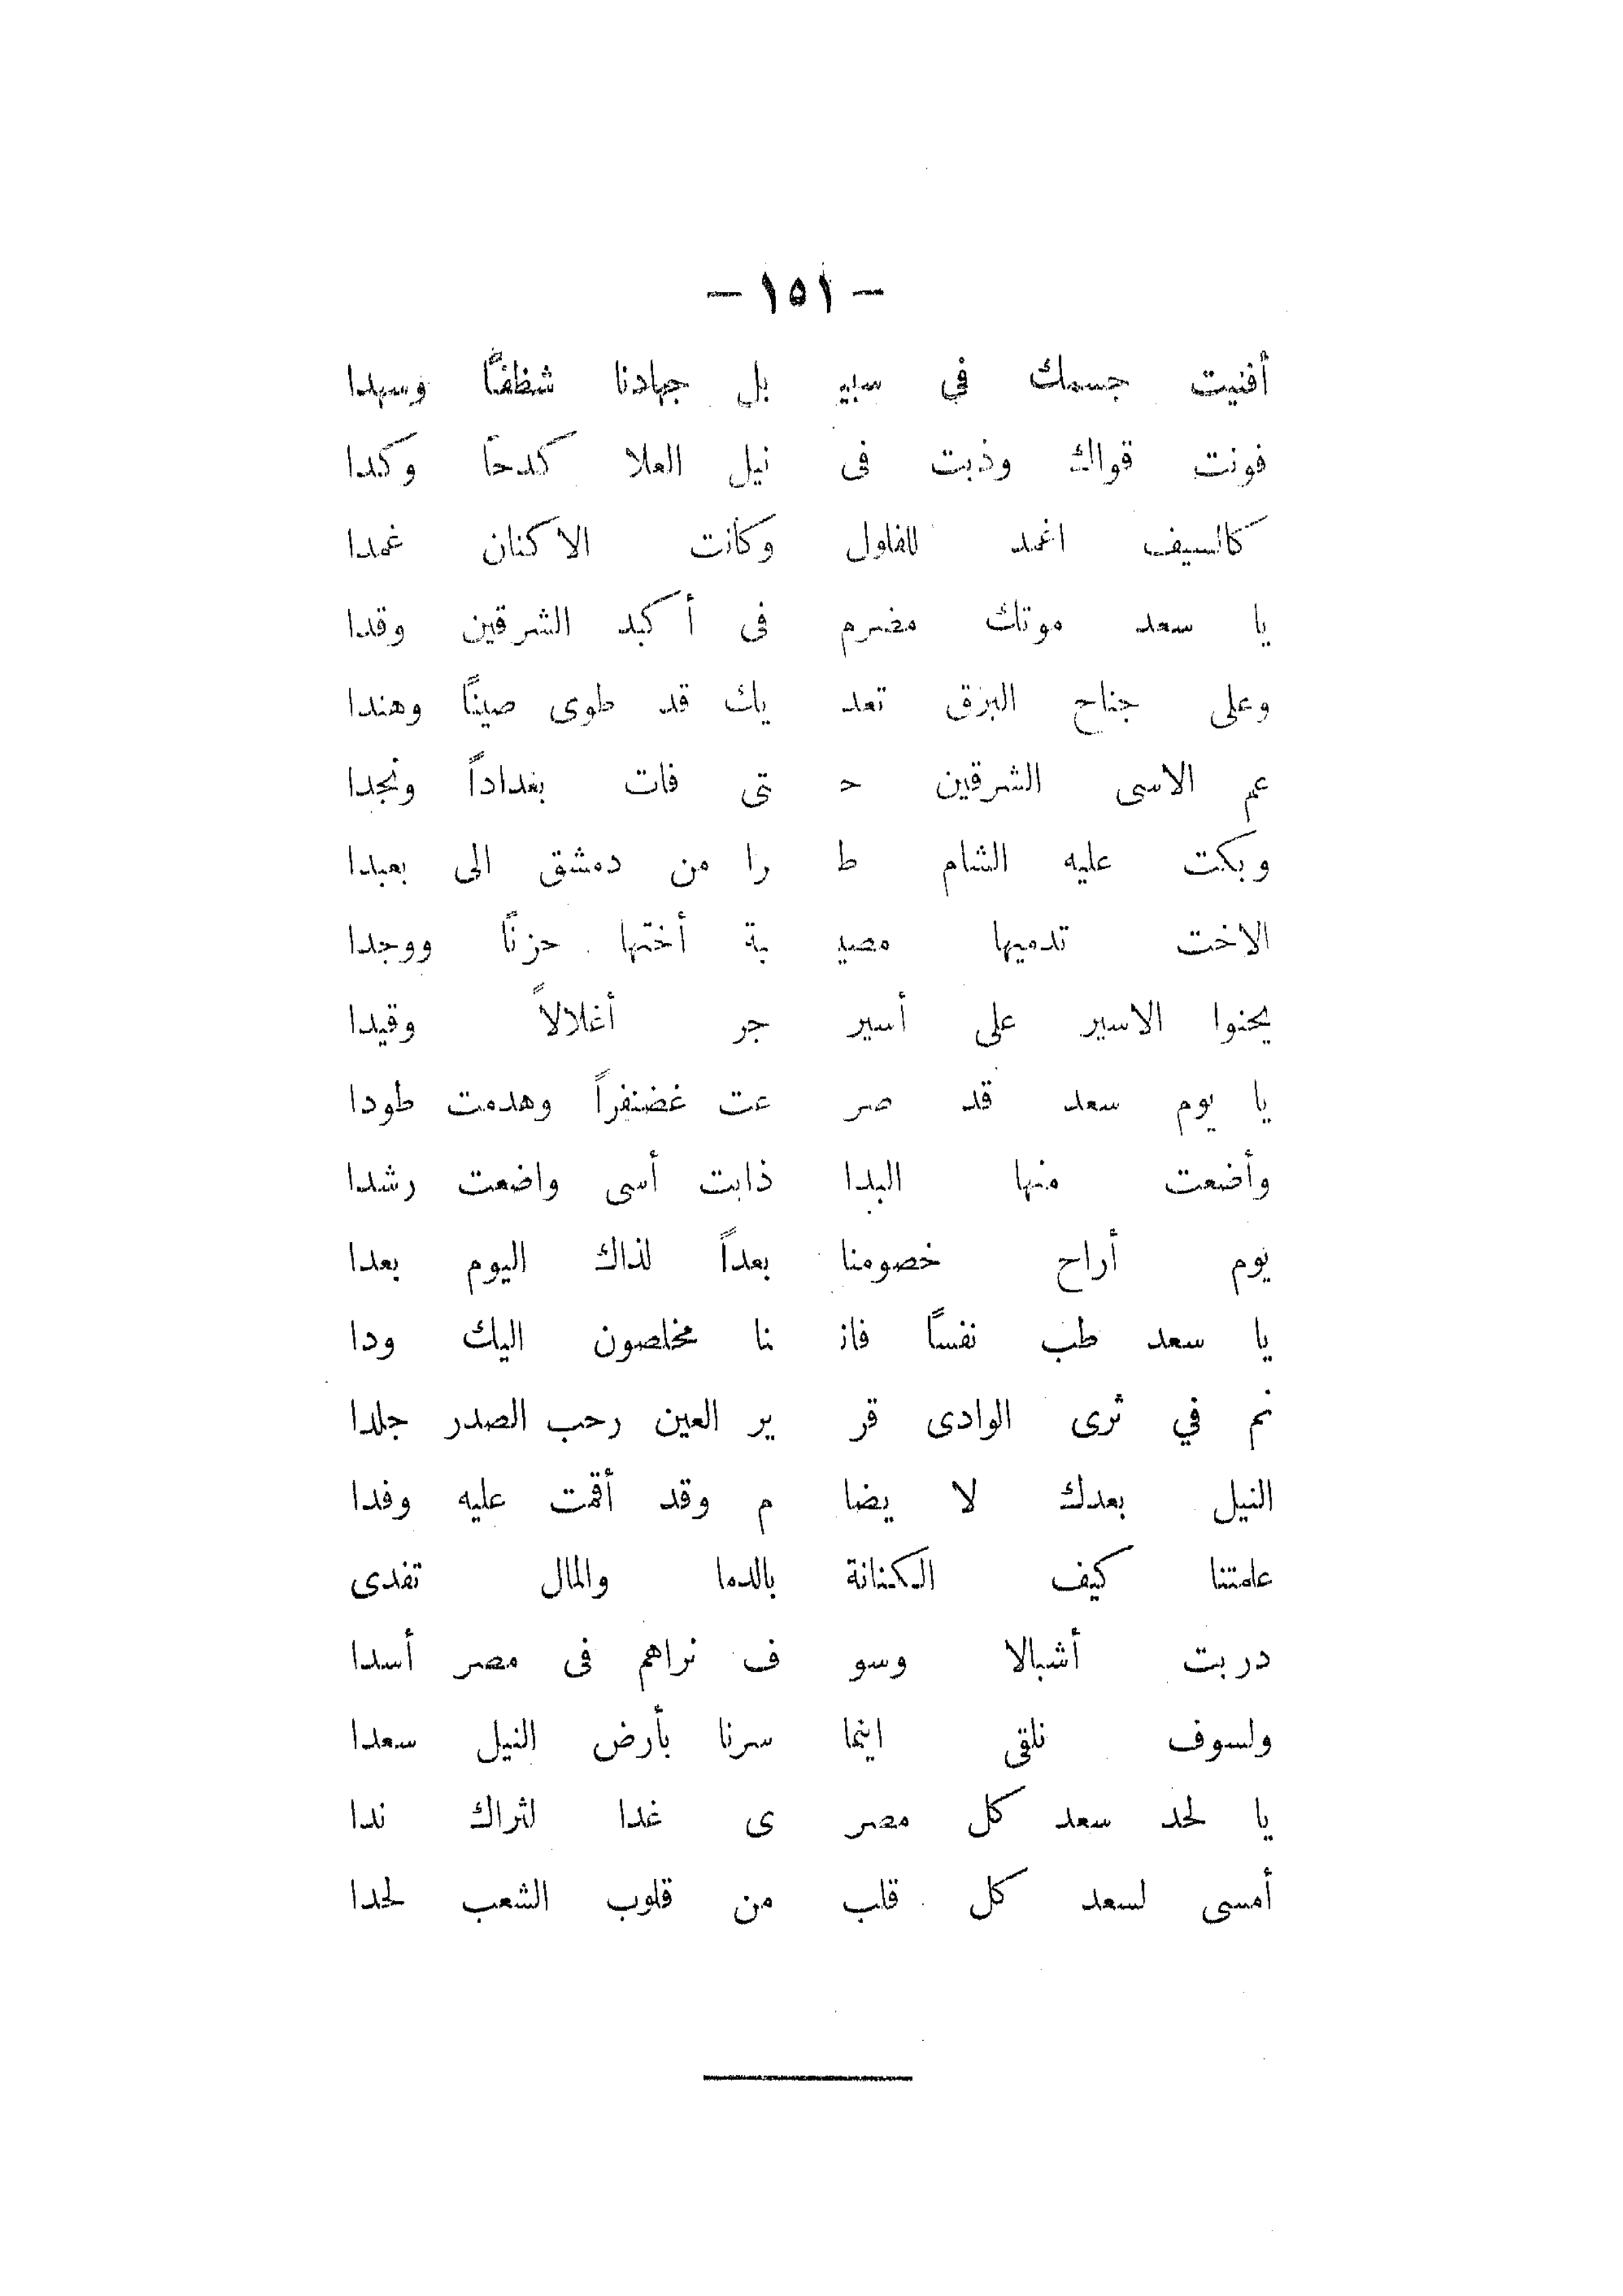 — ١٥١ —
أفنيت جسمك في سبيـ ـل جهادنا شظفاً وسهدا
فونت قواك وذبت فى نيل العلا كدحاً وكدا
كالسيف اغمد للفلول وكانت الاكنان غمدا
يا سعد موتك مضرم فى أكبد الشرقين وقدا
وعلى جناح البرق تعد يك قد طوى صيناً وهندا
عم الاسى الشرقين حـ تى فات بغداداً ونجدا
وبكت عليه الشام ط را من دمشق الى بعبدا
الاخت تدميها مصيـ بة أختها حزناً ووجدا
يحنوا الاسير على أسير جر أغلالاً وقيدا
يا يوم سعد قد صر عت غضنفراً وهدمت طودا
وأضعت منها البدا ذابت أسى واضعت رشدا
يوم أراح خصومنا بعداً لذاك اليوم بعدا
يا سعد طب نفساً فانـ نا مخلصون اليك ودا
نم في ثرى الوادى قر ير العين رحب الصدر جلدا
النيل بعدك لا يضا م وقد أقمت عليه وفدا
علمتنا كيف الكنانة بالدما والمال تفدى
دربت أشبالا وسو ف نراهم فى مصر أسدا
ولسوف نلقى اينما سرنا بأرض النيل سعدا
يا لحد سعد كل مصر ى غدا لثراك ندا
أمسى لسعد كل قلب من قلوب الشعب لحدا